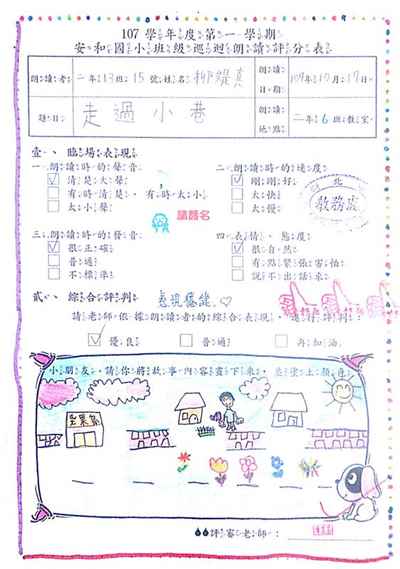 107學年度第一學期
安和國小班級巡迴朗讀評分表
朗讀者 二年13班15號姓名 柳緹真
朗讀日期 107年12月17日
題目 走過小巷
朗讀地點 二年6班教室
壹、臨場表現
一、朗讀時的聲音
清楚大聲
有時清楚,有時太小
太小聲
請簽名
二、朗讀時的速度
剛剛好
太快
太慢
教務處
三、朗讀時的發音
很正確
普通
不標準
四、表情、態度
很自然
有點緊張害怕
說不出話來
貳、綜合評判
表現優能
請老師依據朗讀者的綜合表現,進行評判:
優良
普通
再加油
小朋友,請你將故事內容畫下來,並塗上顏色
評審老師: